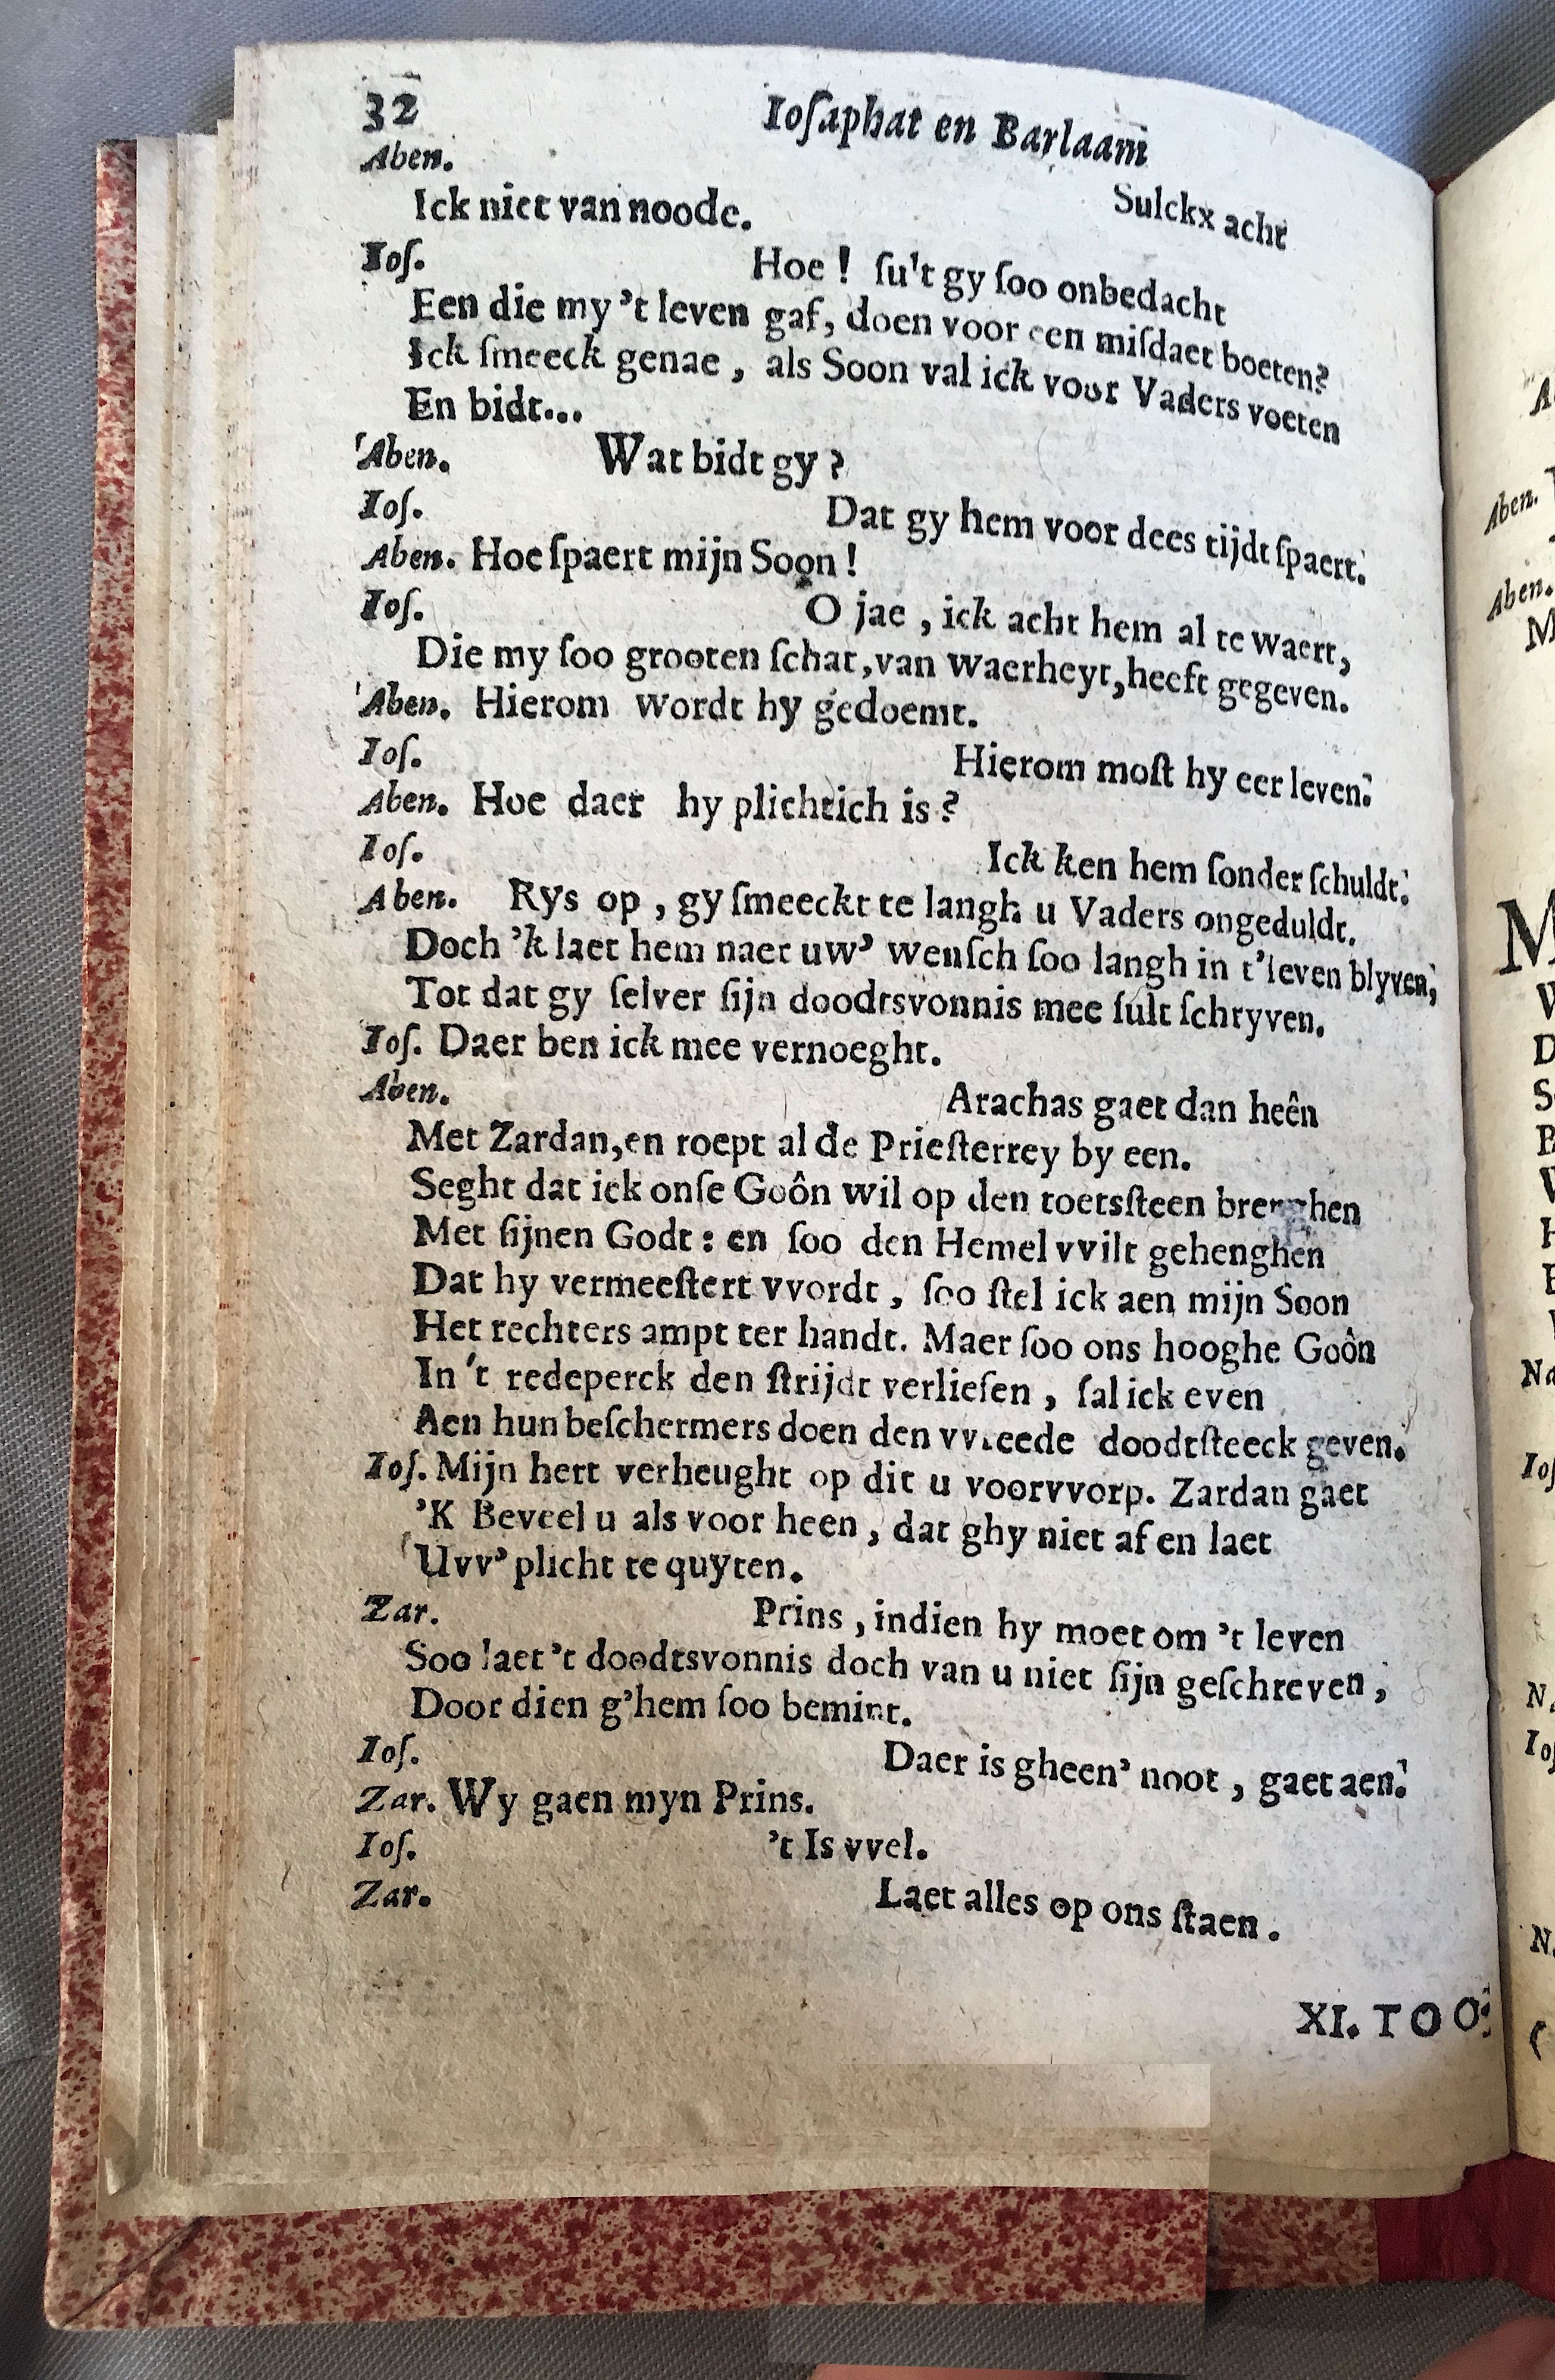 32 Ioſaphat en Barlaam
Aben. Sulckx acht
Ick niet van noode.
Ioſ. Hoe ! ſu't gy ſoo onbedacht
Een die my 't leven gaf, doen voor een miſdaet boeten?
Ick ſmeeck genae , als Soon val ick voor Vaders voeten
En bidt...
Aben. Wat bidt gy ?
Ioſ. Dat gy hem voor dees tijdt ſpaert.
Aben. Hoe ſpaert mijn Soon !
Ioſ. O jae , ick acht hem al te waert,
Die my ſoo grooten ſchat, van waerheyt, heeft gegeven.
Aben. Hierom wordt hy gedoemt.
Ioſ. Hierom moſt hy eer leven.
Aben. Hoe daer hy plichtich is ?
Ioſ. Ick ken hem ſonder ſchuldt.
Aben. Rys op , gy ſmeeckt te langh u Vaders ongeduldt.
Doch 'k laet hem naer uw' wenſch ſoo langh in t'leven blyven,
Tot dat gy ſelver ſijn doodtsvonnis mee ſult ſchryven.
Ioſ. Daer ben ick mee vernoeght.
Aben. Arachas gaet dan heên
Met Zardan, en roept al de Prieſterrey by een.
Seght dat ick onſe Goôn wil op den toetsſteen brenghen
Met ſijnen Godt : en ſoo den Hemel vvilt gehenghen
Dat hy vermeeſtert vvordt , ſoo ſtel ick aen mijn Soon
Het rechters ampt ter handt. Maer ſoo ons hooghe Goôn
In 't redeperck den ſtrijdt verlieſen , ſal ick even
Aen hun beſchermers doen den vvreede doodtſteeck geven.
Ioſ. Mijn hert verheught op dit u voorvvorp. Zardan gaet
'K Beveel u als voor heen , dat ghy niet af en laet
Uvv' plicht te quyten.
Zar. Prins , indien hy moet om 't leven
Soo laet 't doodtsvonnis doch van u niet ſijn geſchreven ,
Door dien g'hem ſoo bemint.
Ioſ. Daer is gheen' noot , gaet aen.
Zar. Wy gaen myn Prins.
Ioſ. 't Is vvel.
Zar. Laet alles op ons ſtaen .
XI. TOO.